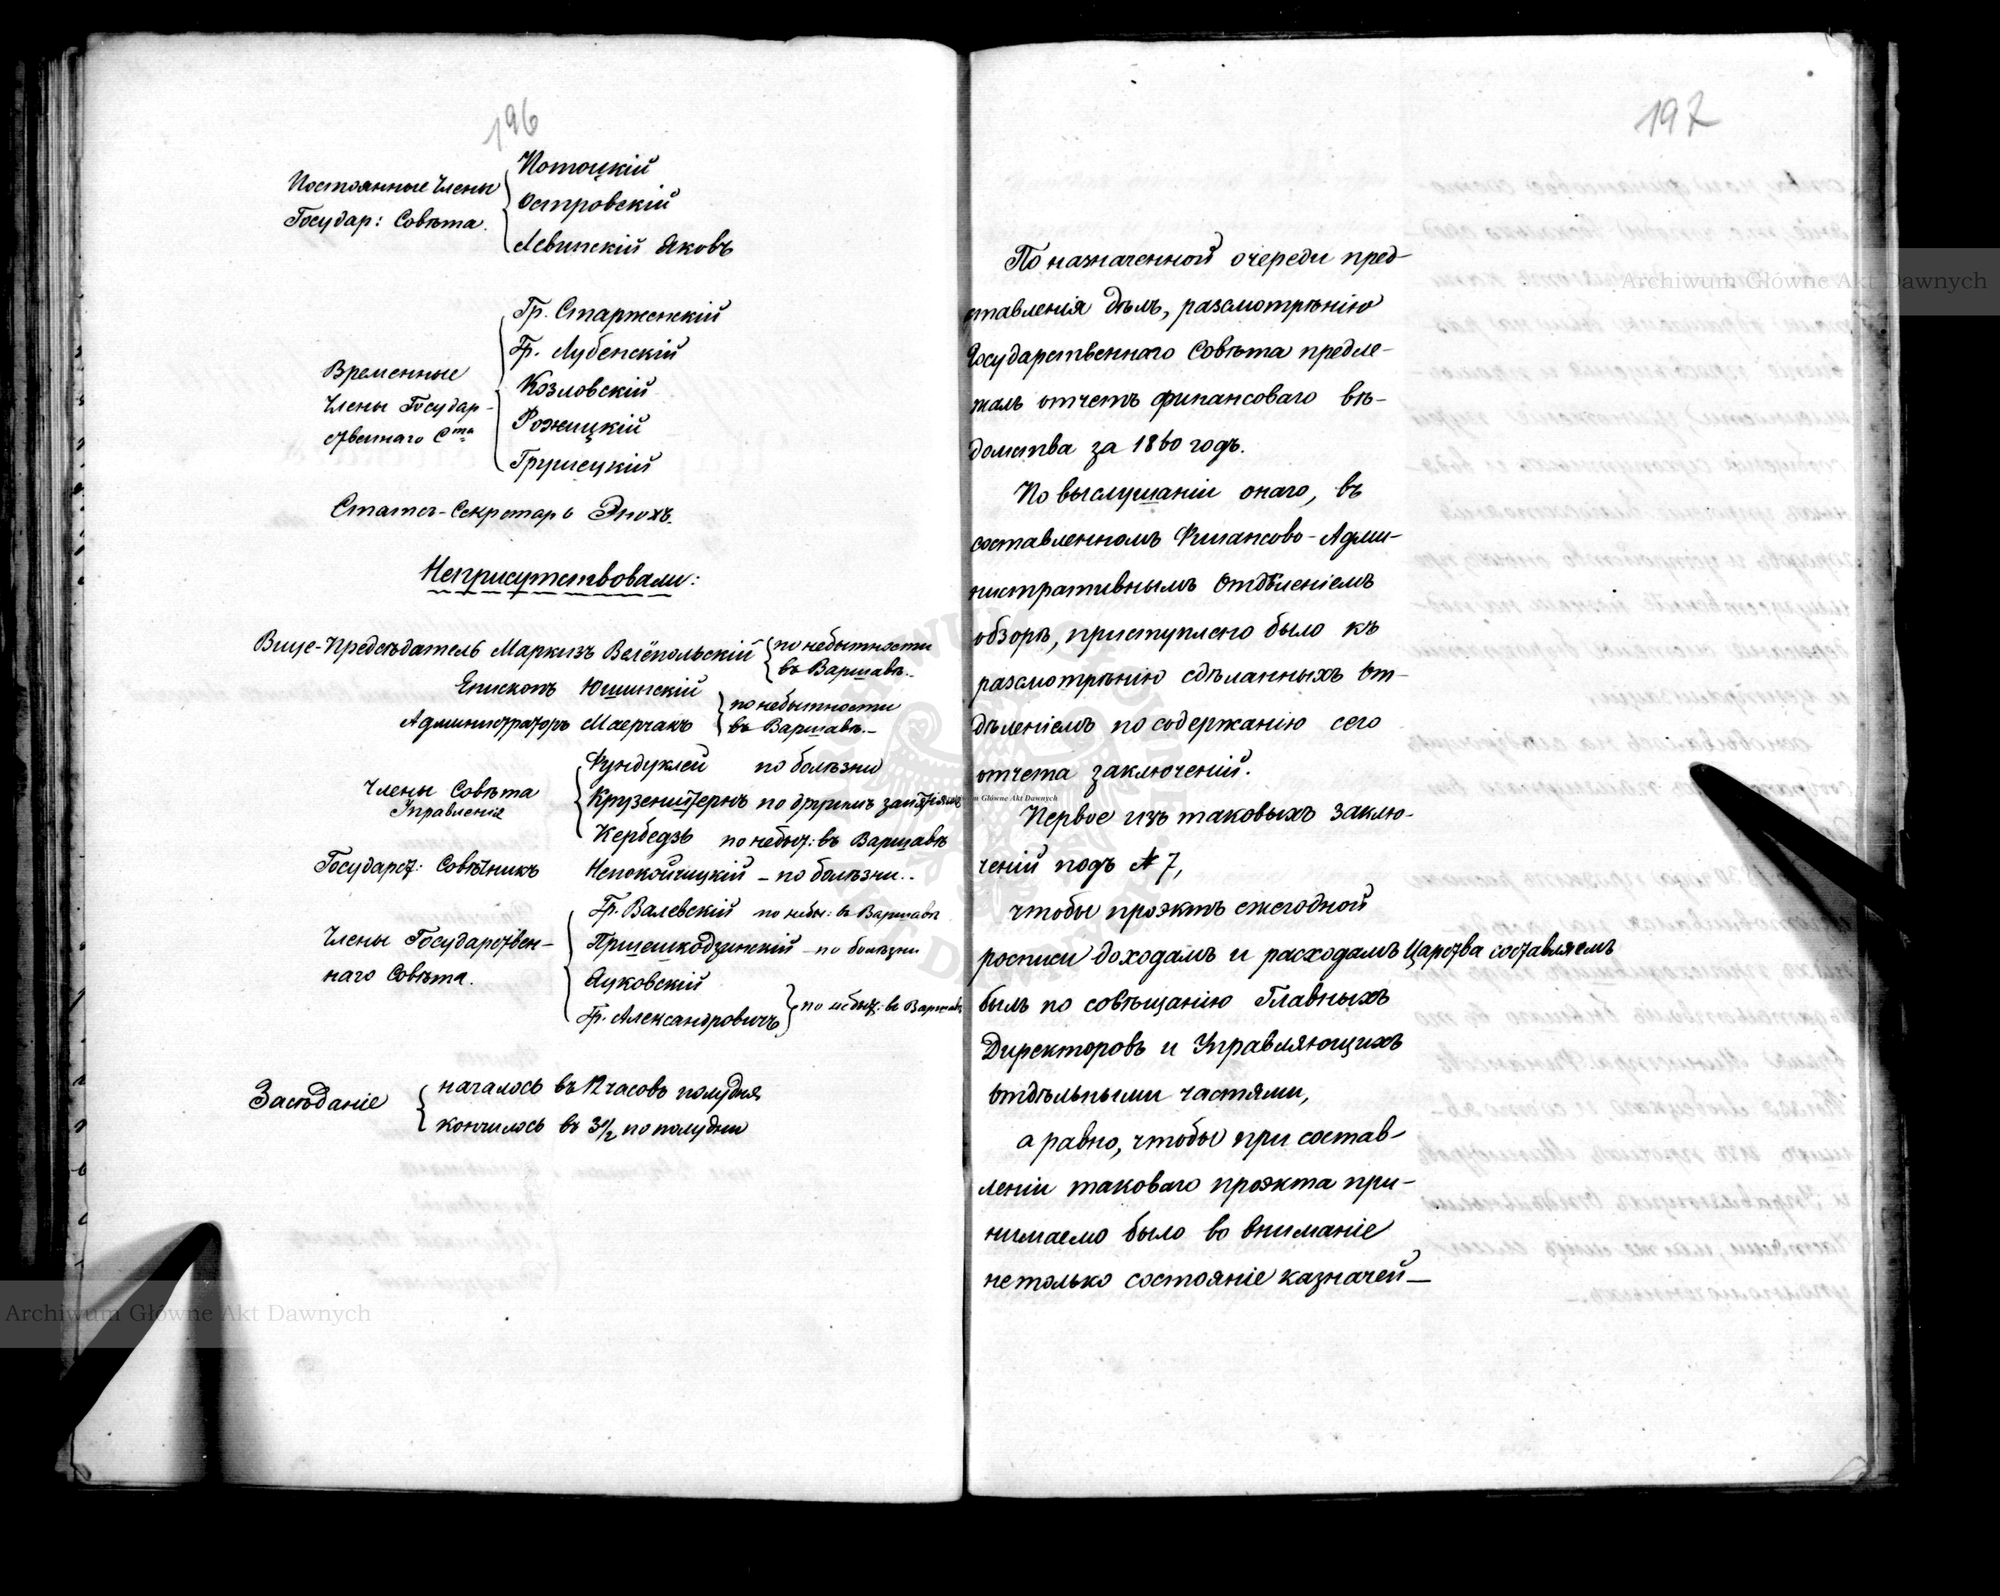 196
Постоянные Члены
Государ: Совѣта.
Потоцкій
Островскій
Левинскій Яковъ
Временные
Члены Государ-
ственнаго С-та
Гр. Старженскій
Гр. Лубенскій
Козловскій
Рожицкій
Грушецкій
Статсъ-Секретарь Энохъ.
Неприсутствовали:
Вице-Предсѣдатель Маркизъ Велёпольскій по небытности
въ Варшавѣ.
Епископъ Юшинскій
Администраторъ Маерчакъ
по небытности
въ Варшавѣ.
Члены Совѣта
Управленія
Фундуклей по болѣзни
Крузенштернъ по другимъ занятіямъ
Кербедзъ по небыт: въ Варшавѣ
Государст: Совѣтникъ Непокойчицкій - по болѣзни.
Члены Государствен-
наго Совѣта.
Гр. Валевскій по небы: въ Варшавѣ
Пршешкодзинскій - по болѣзни
Луковскій
Гр. Александровичъ
по небыт: въ Варшавѣ
Засѣданіе
началось въ 12 часовъ полудня
кончилось въ 3 1/2 по полудни
197
По назначенной очереди пред-
ставленія дѣлъ, разсмотрѣнію
Государственнаго Совѣта предле-
жалъ отчетъ финансоваго вѣ-
домства за 1860 годъ.
По выслушаніи онаго, въ
составленномъ Финансово-Адми-
нистративнымъ Отдѣленіемъ
обзорѣ, приступлено было къ
разсмотрѣнію сдѣланныхъ От-
дѣленіемъ по содержанію сего
отчета заключеній.
Первое изъ таковыхъ заклю-
ченій подъ № 7,
чтобы проэктъ ежегодной
росписи доходамъ и расходамъ Царства составляемъ
былъ по совѣщанію Главныхъ
Директоровъ и Управляющихъ
отдѣльными частями,
а равно, чтобы при состав-
леніи таковаго проэкта при-
нимаемо было во вниманіе
не только состояніе казначей-
Archiwum Główne Akt Dawnych
Archiwum Główne Akt Dawnych